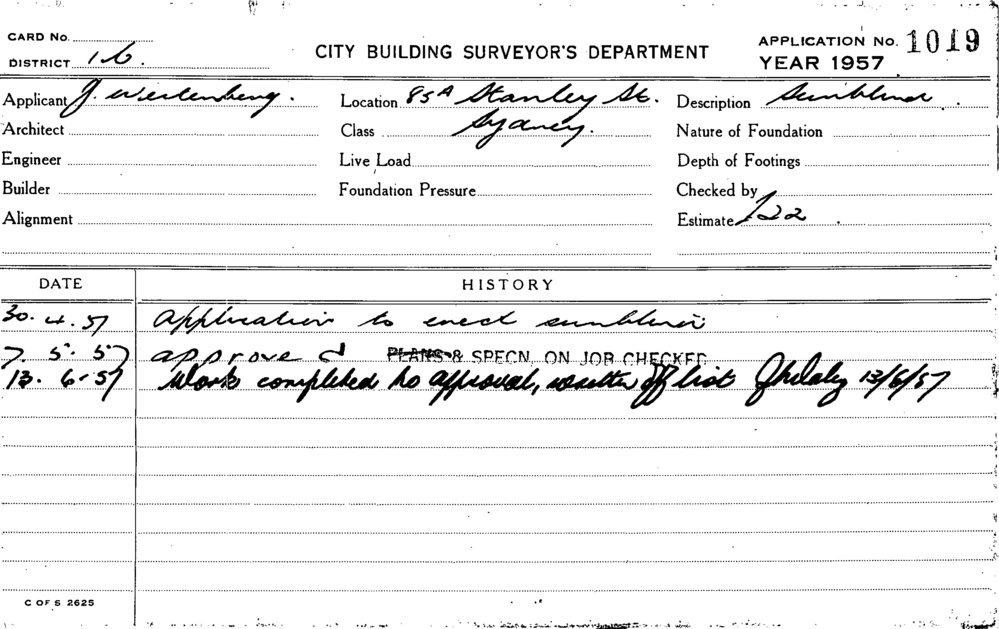 CARD No.
DISTRICT 16.
CITY BUILDING SURVEYOR'S DEPARTMENT
APPLICATION No. 1019
YEAR 1957
Applicant J. Westenberg.
Location 85A Stanley St.
Description Sunblind
Architect
Class Sydney.
Nature of Foundation
Engineer
Live Load
Depth of Footings
Builder
Foundation Pressure
Checked by
Alignment
Estimate 122
DATE
HISTORY
30. 4. 57 Application to erect sunblind
7. 5. 57 approved PLANS & SPECN. ON JOB CHECKED
13. 6. 57 Work completed to approval, written off list 13/6/57
C OF S 2625